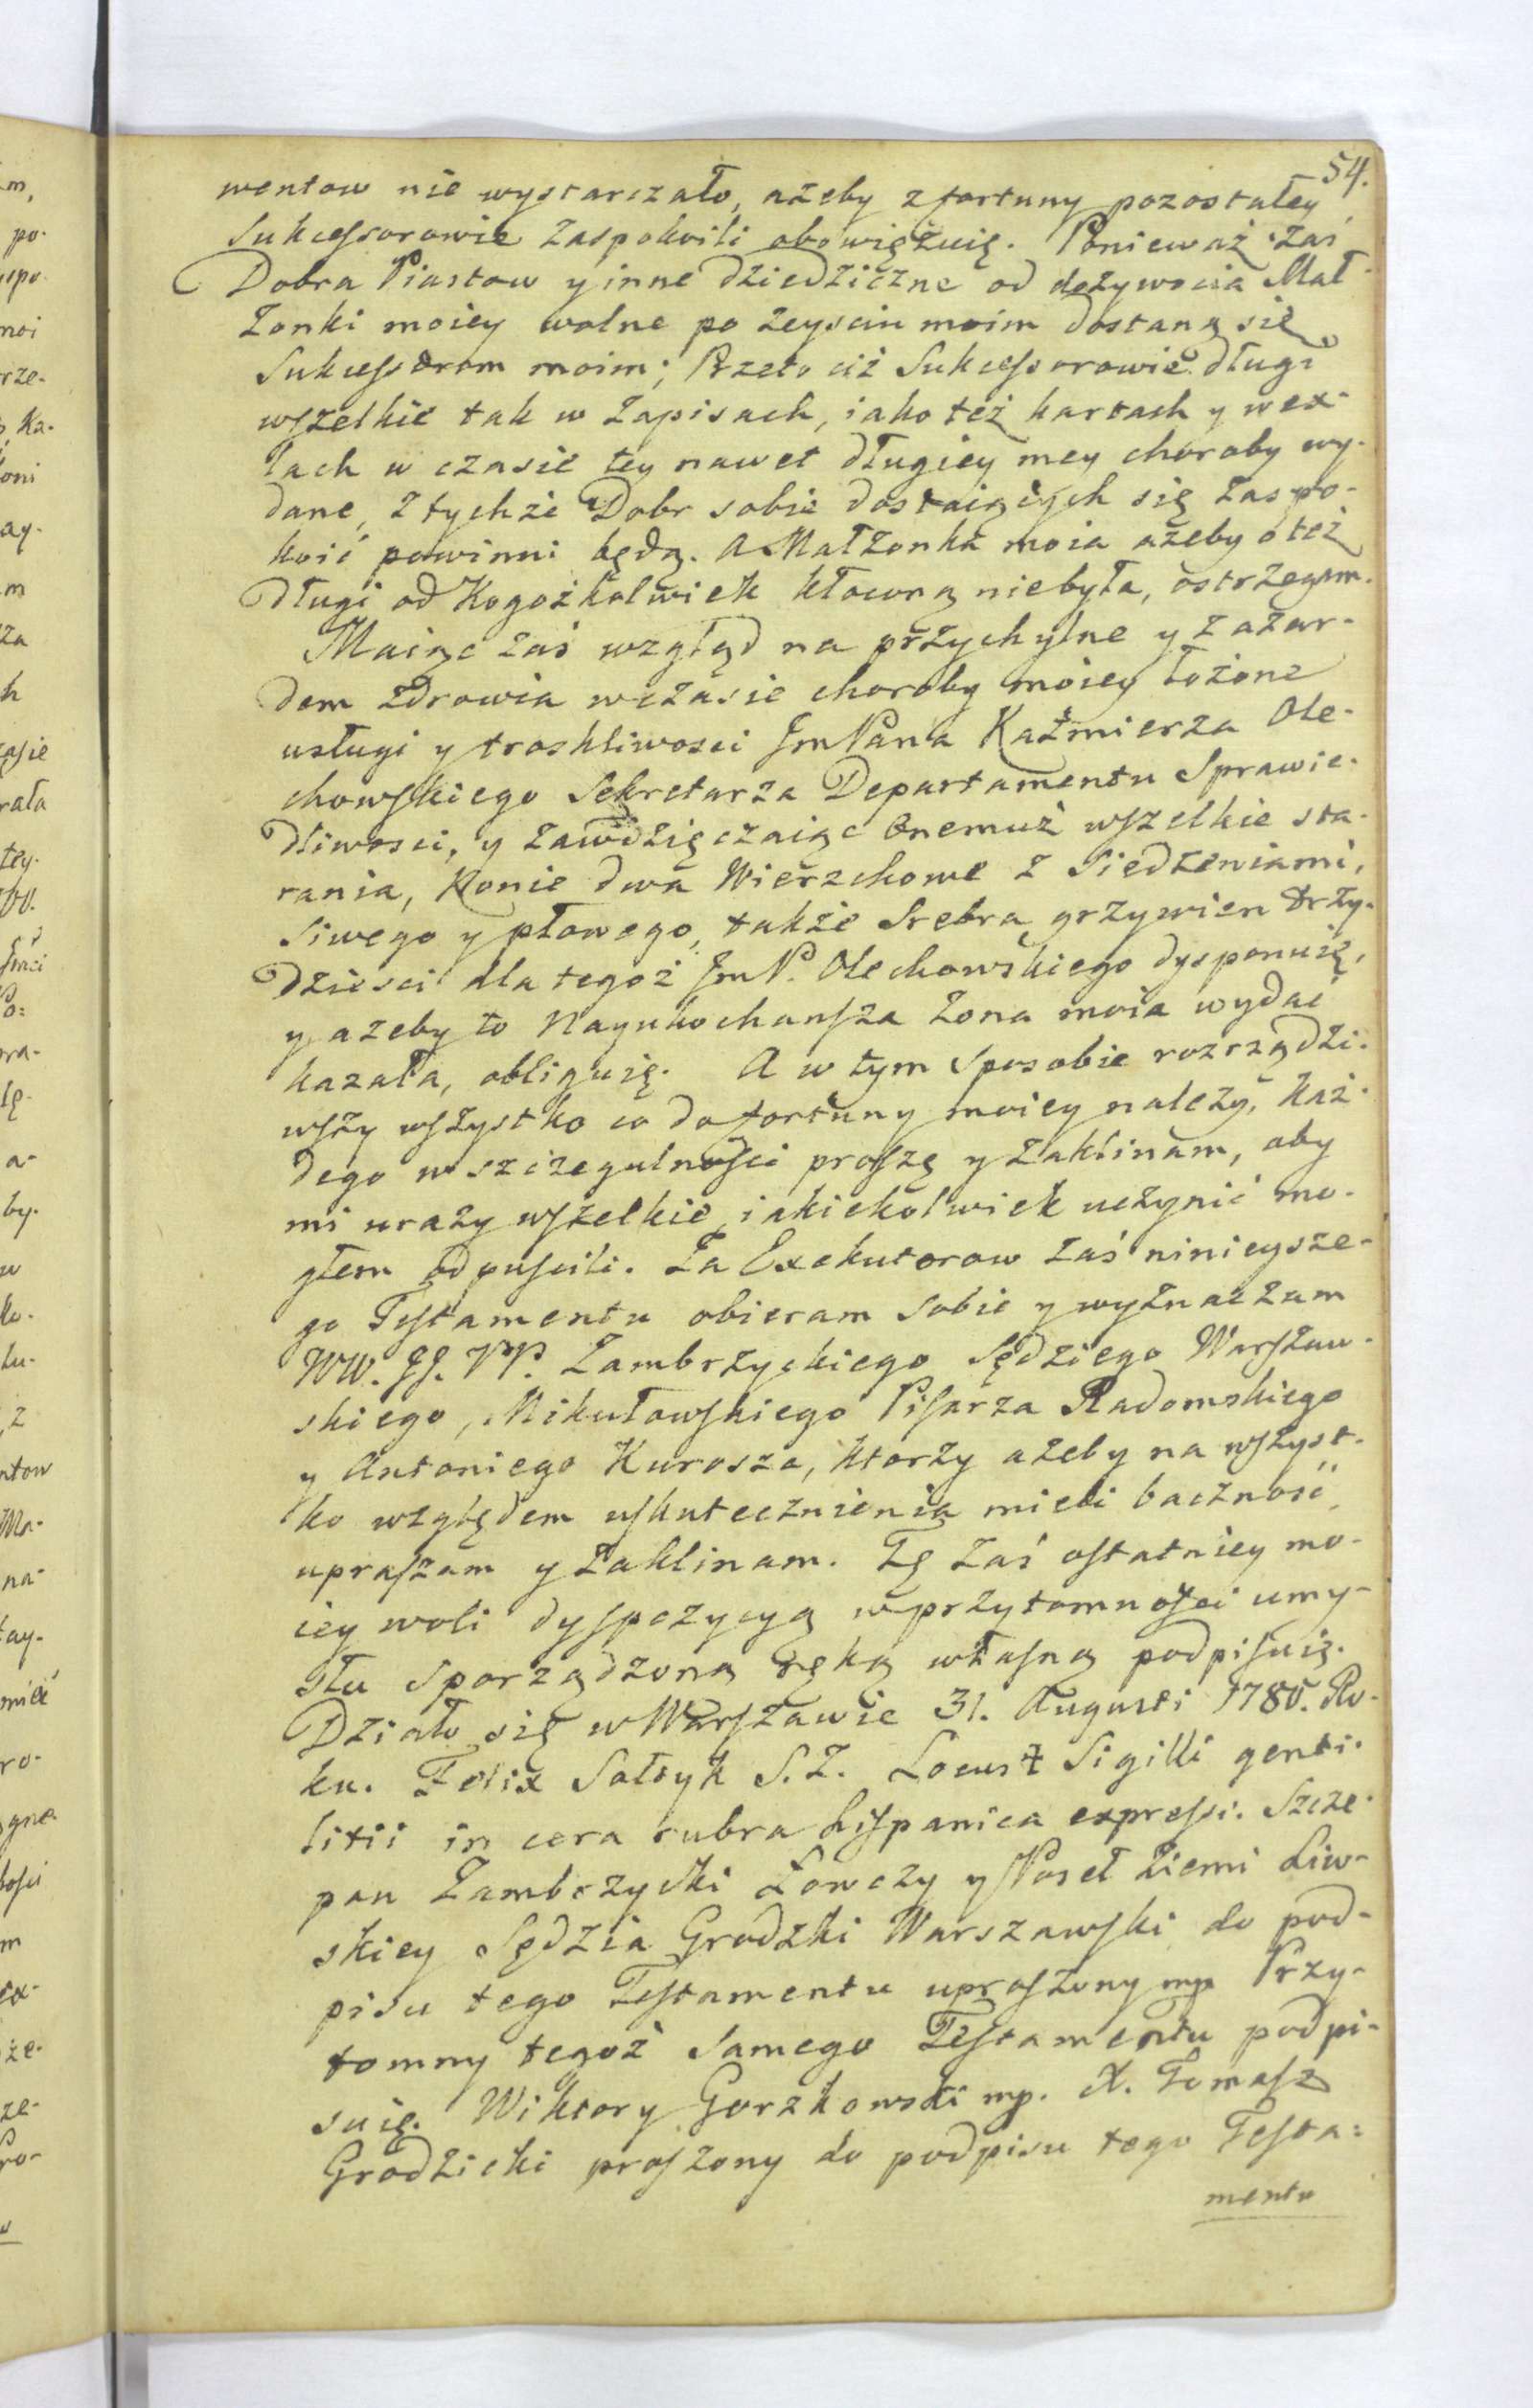 54.
mentow nie wystarczało, ażeby z fortuny pozostałey
Sukcessorowie zaspokoili obowiężuię. Ponieważ zaś
Dobra Piastow y inne dziedziczne od dożywocia Mał-
żonki moiey wolne po zeysciu moim dostaną się
Sukcessorom moim; Przeto ciż Sukcessorowie długi
wszelkie tak w zapisach, iako też kartach y wex-
lach w czasie tey nawet długiey mey choroby wy-
dane, z tychże Dobr sobie dostaiących się zaspo-
koić powinni będą. A Małżonka moia ażeby o też
długi od kogożkolwiek kłocną niebyła, ostrzegam.
Maiąc zaś wzgląd na przychylne y z ażar-
dem zdrowia w czasie choroby moiey łożone
usługi y troskliwosci JmPana Kaźmierza Ole-
chowskiego Sekretarza Departamentu Sprawie-
dliwosci, y zawdzięczaiąc Onemuż wszelkie sta-
rania, Konie dwa Wierzchowe z Siedzeniami,
Siwego y płowego, także Srebra grzywien trzy-
dziesci dla tegoż JmP. Olechowskiego dysponuię,
y ażeby to Nayukochansza Żona moia wydać
kazała, obliguię. A w tym Sposobie rozrządzi-
wszy wszystko co do fortuny moiey należy, każ-
dego w szczegulności proszę y zaklinam, aby
mi urazy wszelkie, iakiekolwiek uczynić mo-
głem odpuscili. Za Exekutorow zaś ninieysze-
go Testamentu obieram sobie y wyznaczam
WW. JJ. PP. Zambrzyckiego Sędziego Warszaw-
skiego, Mikułowskiego Pisarza Radomskiego
y Antoniego Kurosza, ktorzy ażeby na wszyst-
ko względem uskutecznienia mieli baczność,
upraszam y zaklinam. Tę zaś ostatniey mo-
iey woli dyspozycyą w przytomności umy-
słu sporządzoną ręką własną podpisuię.
Działo się w Warszawie 31. Augusti 1780. Ro-
ku. Felix Sołtyk S.Z. Locus Sigilli genti-
litii in cera rubra hispanica expressi. Szcze-
pan Zambrzycki Łowczy y Poseł Ziemi Liw-
skiey Sędzia Grodzki Warszawski do pod-
pisu tego Testamentu uproszony mp Przy-
tomny tegoż samego Testamentu podpi-
suię. Wiktory Gorzkowski mp. X. Tomasz
Grodzicki proszony do podpisu tego Testa:
mentu